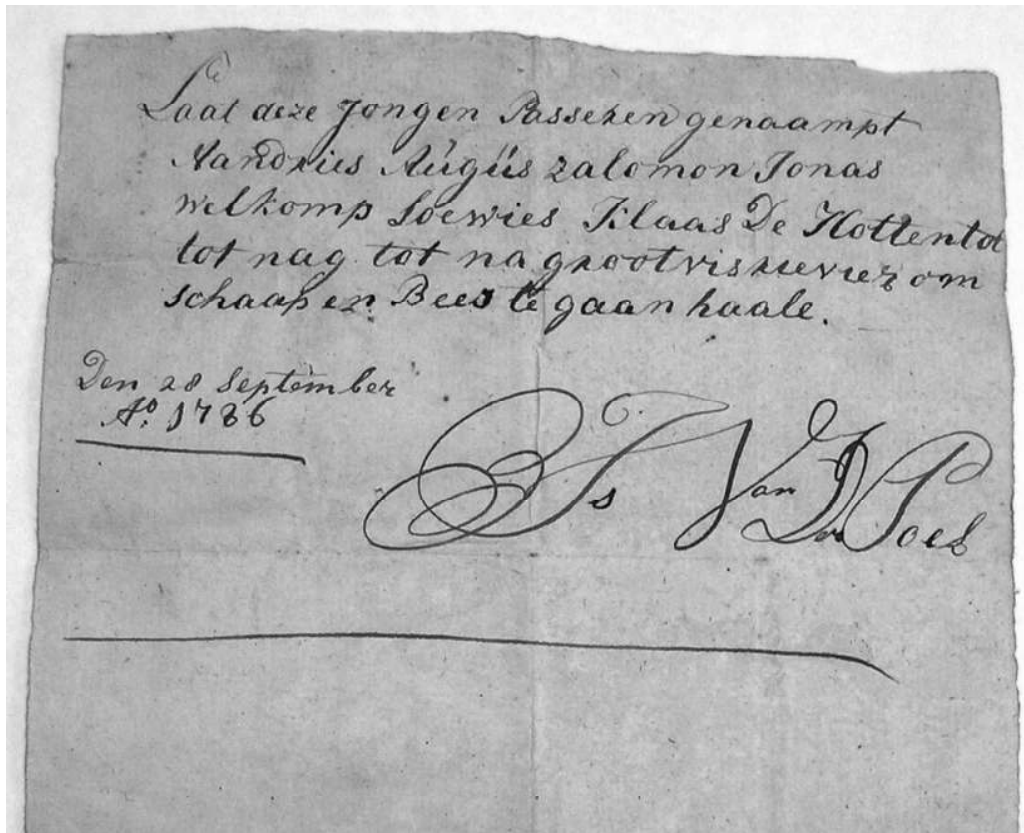 Laat deze Jongen Passeren genaampt
Aandries Augüs zalomon Jonas
welkomp Loewies Klaas De Hottentot
tot nag tot na grootvisrievier om
schaap en Bees te gaan haale.
Den 28 September
Ao. 1786
Is Van Der Poel